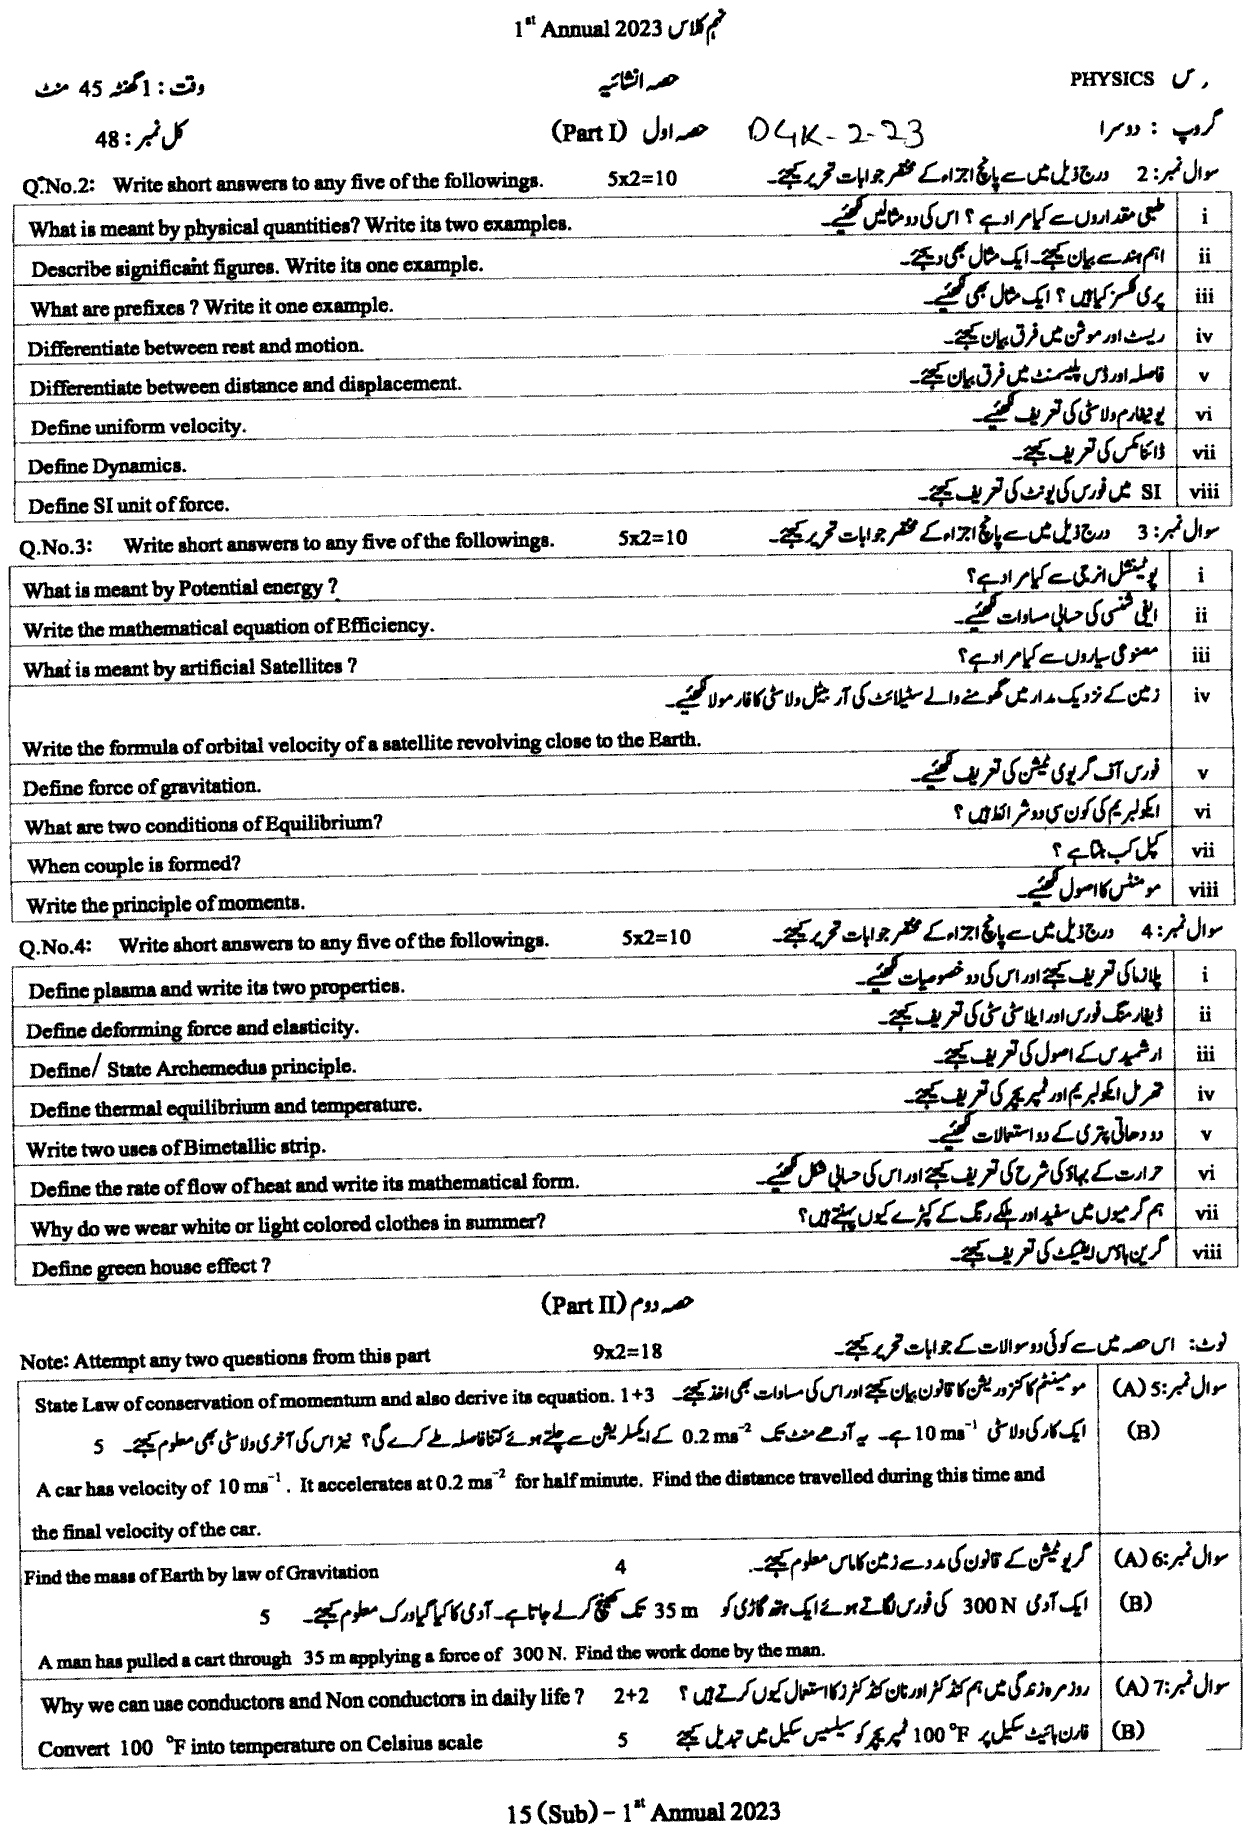 1st Annual 2023 نہم کلاس
PHYSICS حصہ انشائیہ وقت : 1 گھنٹہ 45 منٹ
گروپ : دوسرا DGK-2-23 حصہ اول (Part I) کل نمبر : 48
Q.No.2: Write short answers to any five of the followings. 5x2=10 سوال نمبر : 2 درج ذیل میں سے پانچ اجزاء کے مختصر جوابات تحریر کیجئے۔
What is meant by physical quantities? Write its two examples. طبیعی مقداروں سے کیا مراد ہے ؟ اس کی دو مثالیں لکھئیے۔ i
Describe significant figures. Write its one example. اہم ہندسے بیان کیجئے۔ ایک مثال بھی دیجئے۔ ii
What are prefixes ? Write it one example. پری فکسز کیا ہیں ؟ ایک مثال بھی لکھئیے۔ iii
Differentiate between rest and motion. ریسٹ اور موشن میں فرق بیان کیجئے۔ iv
Differentiate between distance and displacement. فاصلہ اور ڈس پلیسمنٹ میں فرق بیان کیجئے۔ v
Define uniform velocity. یونیفارم ولاسٹی کی تعریف لکھئیے۔ vi
Define Dynamics. ڈائنامکس کی تعریف کیجئے۔ vii
Define SI unit of force. SI میں فورس کی یونٹ کی تعریف کیجئے۔ viii
Q.No.3: Write short answers to any five of the followings. 5x2=10 سوال نمبر : 3 درج ذیل میں سے پانچ اجزاء کے مختصر جوابات تحریر کیجئے۔
What is meant by Potential energy ? پوٹینشل انرجی سے کیا مراد ہے؟ i
Write the mathematical equation of Efficiency. ایفی شنسی کی حسابی مساوات لکھئیے۔ ii
What is meant by artificial Satellites ? مصنوعی سیاروں سے کیا مراد ہے؟ iii
زمین کے نزدیک مدار میں گھومنے والے سٹیلائٹ کی آربیٹل ولاسٹی کا فارمولا لکھئیے۔ iv
Write the formula of orbital velocity of a satellite revolving close to the Earth.
Define force of gravitation. فورس آف گریوی ٹیشن کی تعریف لکھئیے۔ v
What are two conditions of Equilibrium? ایکولبریم کی کون سی دو شرائط ہیں ؟ vi
When couple is formed? کپل کب بنتا ہے ؟ vii
Write the principle of moments. مومنٹس کا اصول لکھئیے۔ viii
Q.No.4: Write short answers to any five of the followings. 5x2=10 سوال نمبر : 4 درج ذیل میں سے پانچ اجزاء کے مختصر جوابات تحریر کیجئے۔
Define plasma and write its two properties. پلازما کی تعریف کیجئے اور اس کی دو خصوصیات لکھئیے۔ i
Define deforming force and elasticity. ڈیفارمنگ فورس اور ایلاسٹی سٹی کی تعریف کیجئے۔ ii
Define/ State Archemedus principle. ارشمیدس کے اصول کی تعریف کیجئے۔ iii
Define thermal equilibrium and temperature. تھرمل ایکولبریم اور ٹمپریچر کی تعریف کیجئے۔ iv
Write two uses of Bimetallic strip. دو دھاتی پتری کے دو استعمالات لکھئیے۔ v
Define the rate of flow of heat and write its mathematical form. حرارت کے بہاؤ کی شرح کی تعریف کیجئے اور اس کی حسابی شکل لکھئیے۔ vi
Why do we wear white or light colored clothes in summer? ہم گرمیوں میں سفید اور ہلکے رنگ کے کپڑے کیوں پہنتے ہیں؟ vii
Define green house effect ? گرین ہاؤس ایفیکٹ کی تعریف کیجئے۔ viii
حصہ دوم (Part II)
Note: Attempt any two questions from this part 9x2=18 نوٹ: اس حصہ میں سے کوئی دو سوالات کے جوابات تحریر کیجئے۔
State Law of conservation of momentum and also derive its equation. 1+3 مومینٹم کا کنزرویشن کا قانون بیان کیجئے اور اس کی مساوات بھی اخذ کیجئے۔ سوال نمبر:5 (A)
(B) ایک کار کی ولاسٹی 10 ms⁻¹ ہے۔ یہ آدھے منٹ تک 0.2 ms⁻² کے ایکسلریشن سے چلتے ہوئے کتنا فاصلہ طے کرے گی؟ نیز اس کی آخری ولاسٹی بھی معلوم کیجئے۔ 5
A car has velocity of 10 ms⁻¹ . It accelerates at 0.2 ms⁻² for half minute. Find the distance travelled during this time and
the final velocity of the car.
Find the mass of Earth by law of Gravitation 4 گریوٹیشن کے قانون کی مدد سے زمین کا ماس معلوم کیجئے۔ سوال نمبر:6 (A)
(B) ایک آدمی 300 N کی فورس لگاتے ہوئے ایک ہتھ گاڑی کو 35 m تک کھینچ کر لے جاتا ہے۔ آدمی کا کیا گیا ورک معلوم کیجئے۔ 5
A man has pulled a cart through 35 m applying a force of 300 N. Find the work done by the man.
Why we can use conductors and Non conductors in daily life ? 2+2 روزمرہ زندگی میں ہم کنڈکٹر اور نان کنڈکٹرز کا استعمال کیوں کرتے ہیں ؟ سوال نمبر:7 (A)
Convert 100 °F into temperature on Celsius scale 5 فارن ہائیٹ سکیل پر 100 °F ٹمپریچر کو سیلسیس سکیل میں تبدیل کیجئے (B)
15 (Sub) – 1st Annual 2023